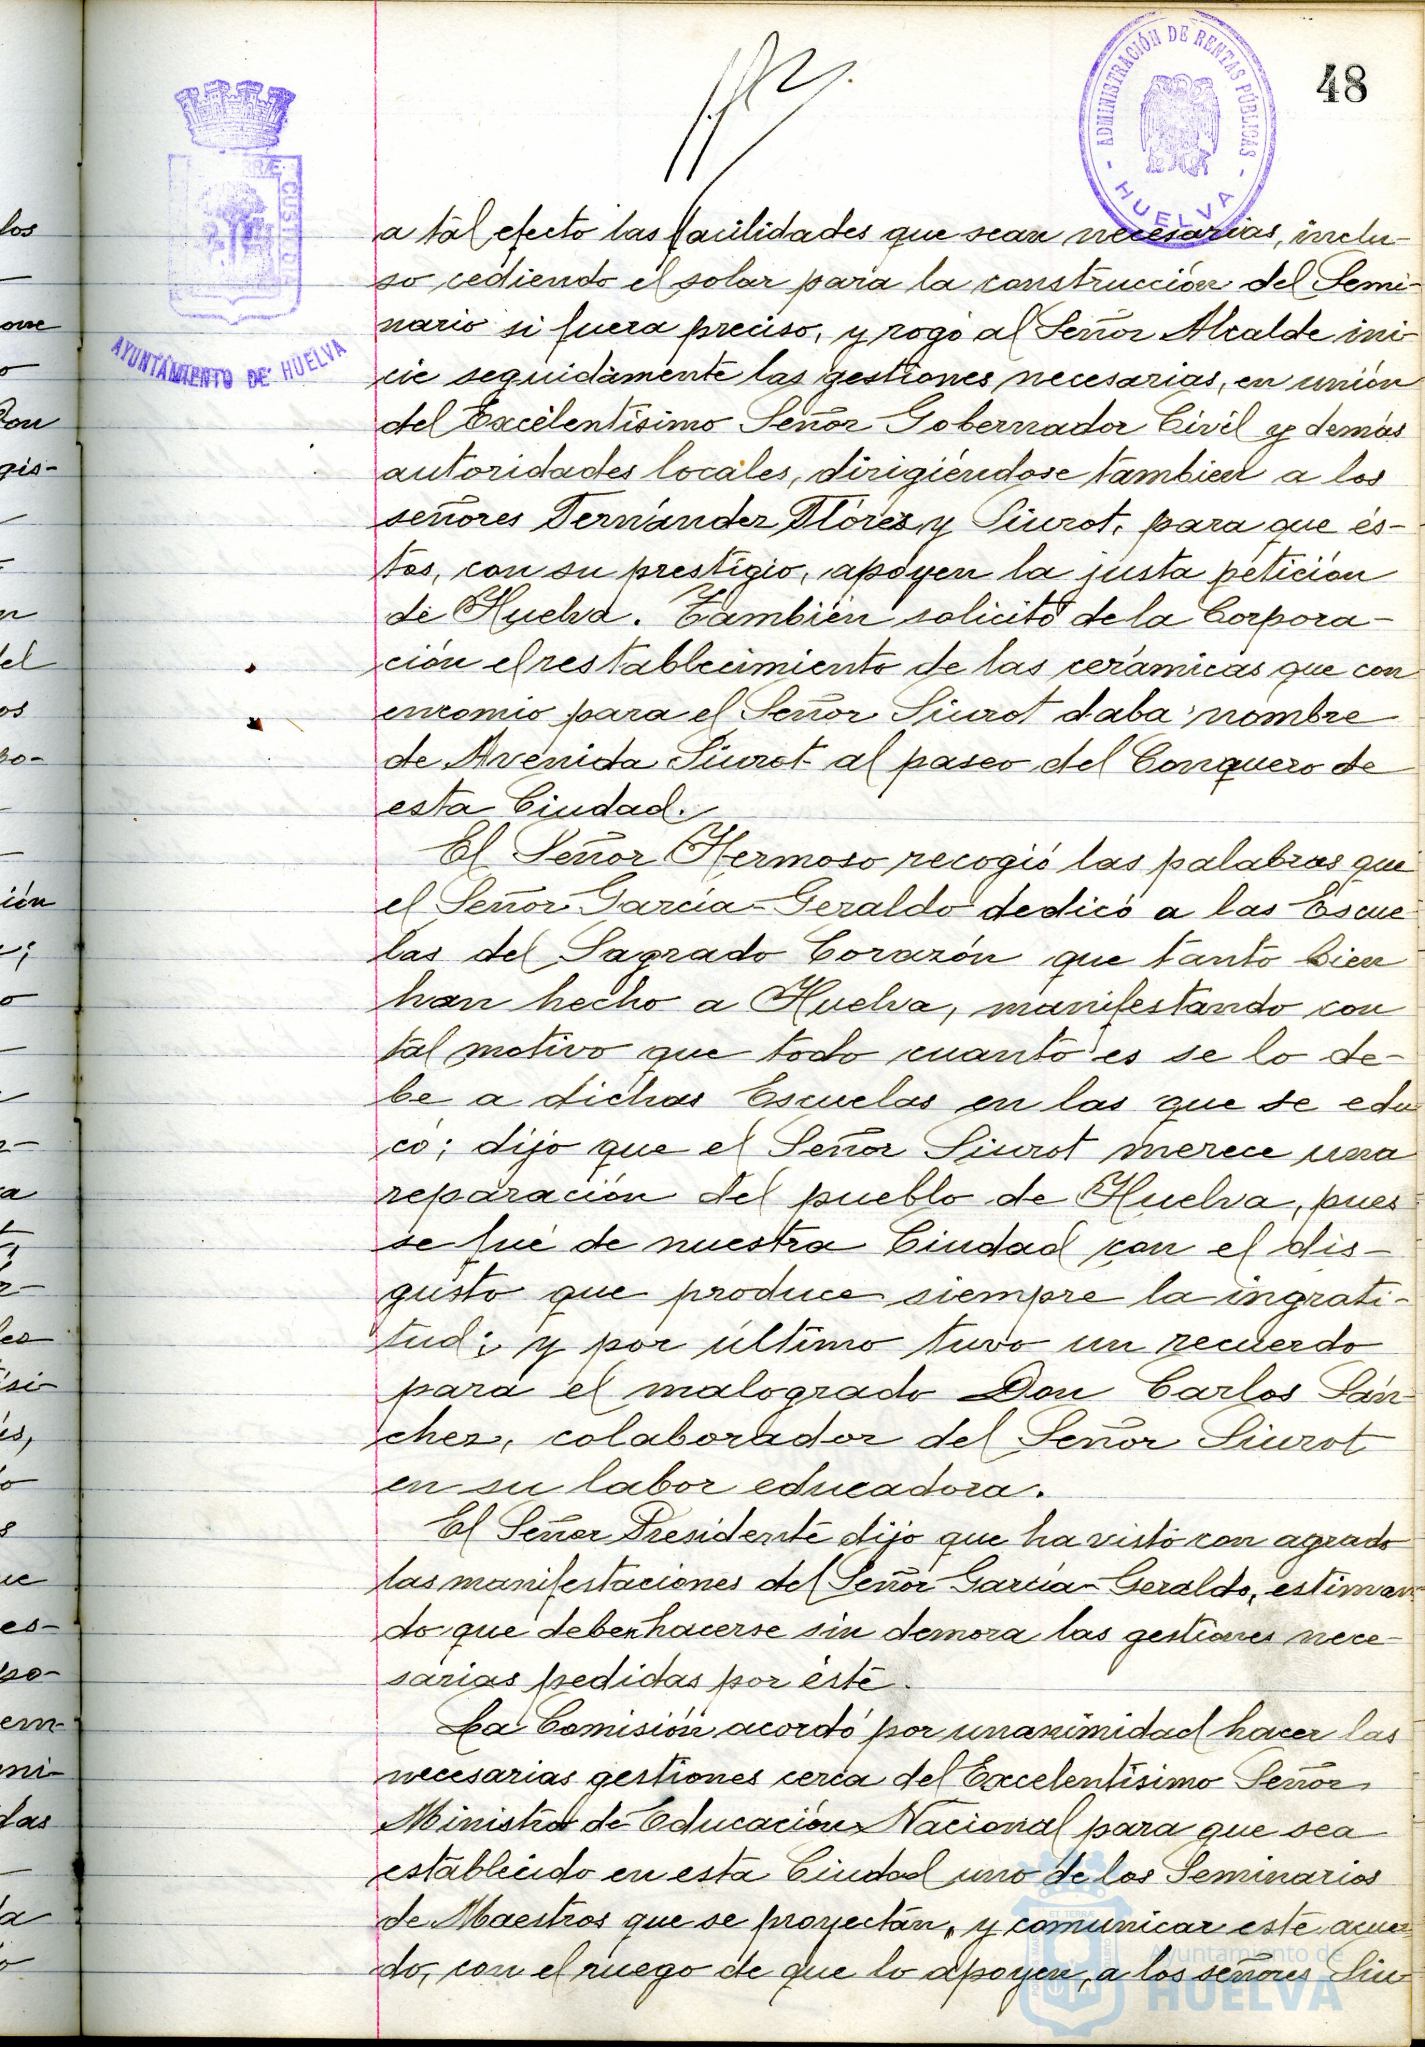 48
ADMINISTRACIÓN DE RENTAS PÚBLICAS
- HUELVA -
CUSTODIA
AYUNTAMIENTO DE HUELVA
a tal efecto las facilidades que sean necesarias, inclu-
so cediendo el solar para la construcción del Semi-
nario si fuera preciso, y rogó al Señor Alcalde ini-
cie seguidamente las gestiones necesarias, en unión
del Excelentísimo Señor Gobernador Civil y demás
autoridades locales, dirigiéndose tambien a los
señores Fernández Flórez y Siurot, para que és-
tos, con su prestigio, apoyen la justa petición
de Huelva. También solicitó de la Corpora-
ción el restablecimiento de las cerámicas que con
encomio para el Señor Siurot daba nombre
de Avenida Siurot al paseo del Conquero de
esta Ciudad.
El Señor Hermoso recogió las palabras que
el Señor García-Geraldo dedicó a las Escue
las del Sagrado Corazón que tanto bien
han hecho a Huelva, manifestando con
tal motivo que todo cuanto es se lo de-
be a dichas Escuelas en las que se edu
có; dijo que el Señor Siurot merece una
reparación del pueblo de Huelva, pues
se fué de nuestra Ciudad con el dis-
gusto que produce siempre la ingrati-
tud; y por último tuvo un recuerdo
para el malogrado Don Carlos Sán-
chez, colaborador del Señor Siurot
en su labor educadora.
El Señor Presidente dijo que ha visto con agrado
las manifestaciones del Señor García-Geraldo, estiman-
do que deben hacerse sin demora las gestiones nece-
sarias pedidas por éste.
La Comisión acordó por unanimidad hacer las
necesarias gestiones cerca del Excelentísimo Señor
Ministro de Educación Nacional para que sea
establecido en esta Ciudad uno de los Seminarios
de Maestros que se proyectán, y comunicar este acuer
do, con el ruego de que lo apoyen, a los señores Siu-
Ayuntamiento de
HUELVA